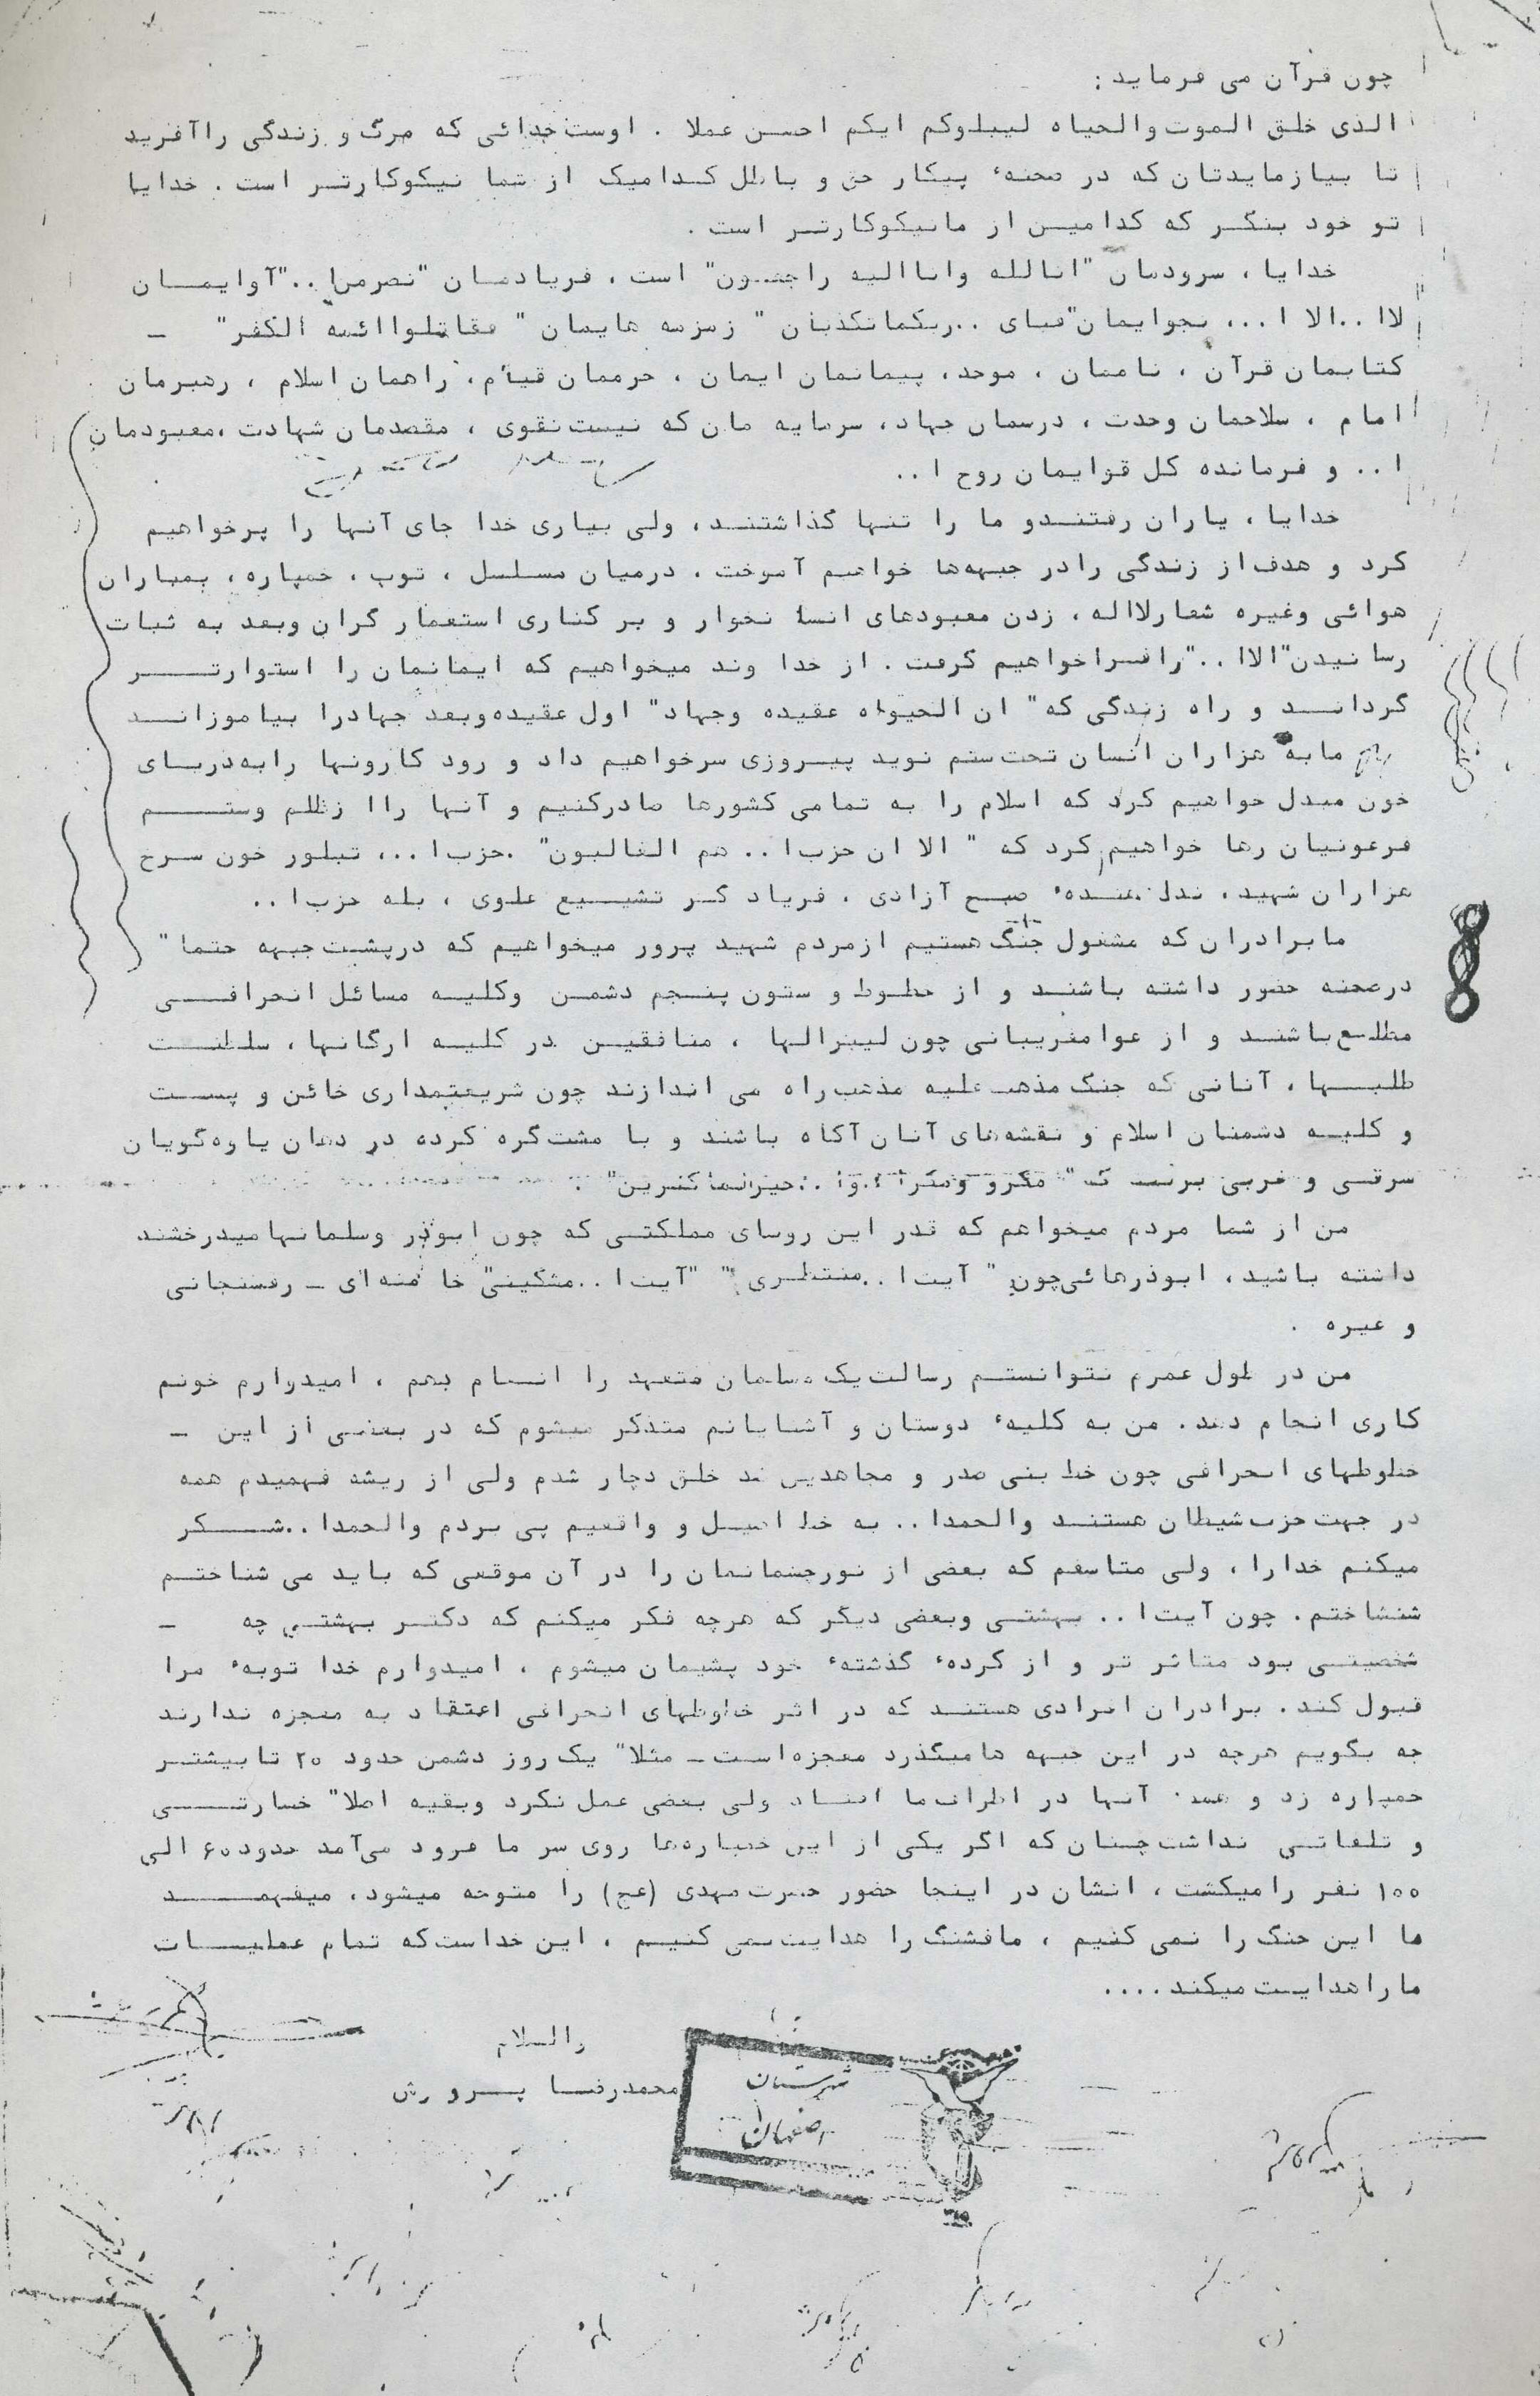 چون قرآن می فرماید :
الذی خلق الموت والحیاه لیبلوکم ایکم احسن عملا . اوست خدائی که مرگ و زندگی را آفرید
تا بیازمایدتان که در صحنهٔ پیکار حق و باطل کدامیک از شما نیکوکارتر است . خدایا
تو خود بنگر که کدامین از ما نیکوکارتر است .
خدایا ، سرودمان "انا لله وانا الیه راجعون" است ، فریادمان "نصرمن ا.." آوایمان
لاا ..الا ا ... نجوایمان "فبای ..ربکما تکذبان " زمزمه هایمان " فقاتلوا ائمه الکفر" –
کتابمان قرآن ، ناممان ، موحد ، پیمانمان ایمان ، حرممان قیام ، راهمان اسلام ، رهبرمان
امام ، سلاحمان وحدت ، درسمان جهاد ، سرمایه مان که نیست تقوی ، مقصدمان شهادت ، معبودمان
ا .. و فرمانده کل قوایمان روح ا ..
خدایا ، یاران رفتند و ما را تنها گذاشتند ، ولی بیاری خدا جای آنها را پر خواهیم
کرد و هدف از زندگی را در جبهه‌ها خواهیم آموخت . درمیان مسلسل ، توپ ، خمپاره ، بمباران
هوائی وغیره شعار لااله ، زدن معبودهای انسا نخوار و بر کناری استعمار گران وبعد به ثبات
رسانیدن "الاا .." را فرا خواهیم گرفت . از خدا وند میخواهیم که ایمانمان را استوارتر
گرداند و راه زندگی که " ان الحیواه عقیده وجهاد " اول عقیده وبعد جهاد را بیاموزاند
ما به هزاران انسان تحت ستم نوید پیروزی سرخواهیم داد و رود کارونها را به دریای
خون مبدل خواهیم کرد که اسلام را به تمامی کشورها صادر کنیم و آنها را از ظلم وستم
فرعونیان رها خواهیم کرد که " الا ان حزب ا .. هم الغالبون" . حزب ا ... تبلور خون سرخ
هزاران شهید ، صبح آزادی ، فریاد گر تشییع علوی ، بله حزب ا ..
ما برادران که مشغول جنگ هستیم از مردم شهید پرور میخواهیم که در پشت جبهه حتما "
درصحنه حضور داشته باشند و از خطوط و ستون پنجم دشمن وکلیه مسائل انحرافی
مطلع باشند و از عوامفریبانی چون لیبرالها ، منافقین در کلیه ارگانها ، سلطنت
طلبها ، آنانی که جنگ مذهب علیه مذهب راه می اندازند چون شریعتمداری خائن و پست
و کلیه دشمنان اسلام و نقشه‌های آنان آگاه باشند و با مشت گره کرده در دهان یاوه گویان
شرقی و غربی بزنند که " مکرو ومکرا ..وا ..خیرالماکرین" .
من از شما مردم میخواهم که قدر این روسای مملکتی که چون ابوذر وسلمانها میدرخشند
داشته باشید ، ابوذرهائی چون " آیت ا ..منتظری " "آیت ا ..مشکینی" خا منه ای – رفسنجانی
و غیره .
من در طول عمرم نتوانستم رسالت یک مسلمان متعهد را انجام بدهم ، امیدوارم خونم
کاری انجام دهد . من به کلیهٔ دوستان و آشنایانم متذکر میشوم که در بعضی از این –
خطوطهای انحرافی چون خط بنی صدر و مجاهدین ضد خلق دچار شدم ولی از ریشه فهمیدم همه
در جهت حزب شیطان هستند والحمدا .. به خط اصیل و واقعیم پی بردم والحمدا ..شکر
میکنم خدارا ، ولی متاسفم که بعضی از نورچشمانمان را در آن موقعی که باید می شناختم
نشناختم . چون آیت ا .. بهشتی وبعضی دیگر که هرچه فکر میکنم که دکتر بهشتی چه –
شخصیتی بود متاثر تر و از کردهٔ گذشتهٔ خود پشیمان میشوم ، امیدوارم خدا توبهٔ مرا
قبول کند . برادران افرادی هستند که در اثر خطوطهای انحرافی اعتقاد به معجزه ندارند
چه بگویم هرچه در این جبهه ها میگذرد معجزه است – مثلا" یک روز دشمن حدود ۲۰ تا بیشتر
خمپاره زد و همهٔ آنها در اطراف ما افتاد ولی بعضی عمل نکرد وبقیه اصلا" خسارتی
و تلفاتی نداشت چنان که اگر یکی از این خمپاره‌ها روی سر ما فرود می‌آمد حدود ۶۰ الی
۱۰۰ نفر را میکشت ، انشان در اینجا حضور حضرت مهدی (عج) را متوجه میشود ، میفهمد
ما این جنگ را نمی کنیم ، ما فشنگ را هدایت نمی کنیم ، این خداست که تمام عملیات
ما را هدایت میکند ....
والسلام
محمدرضا پرورش
شهرستان
اصفهان